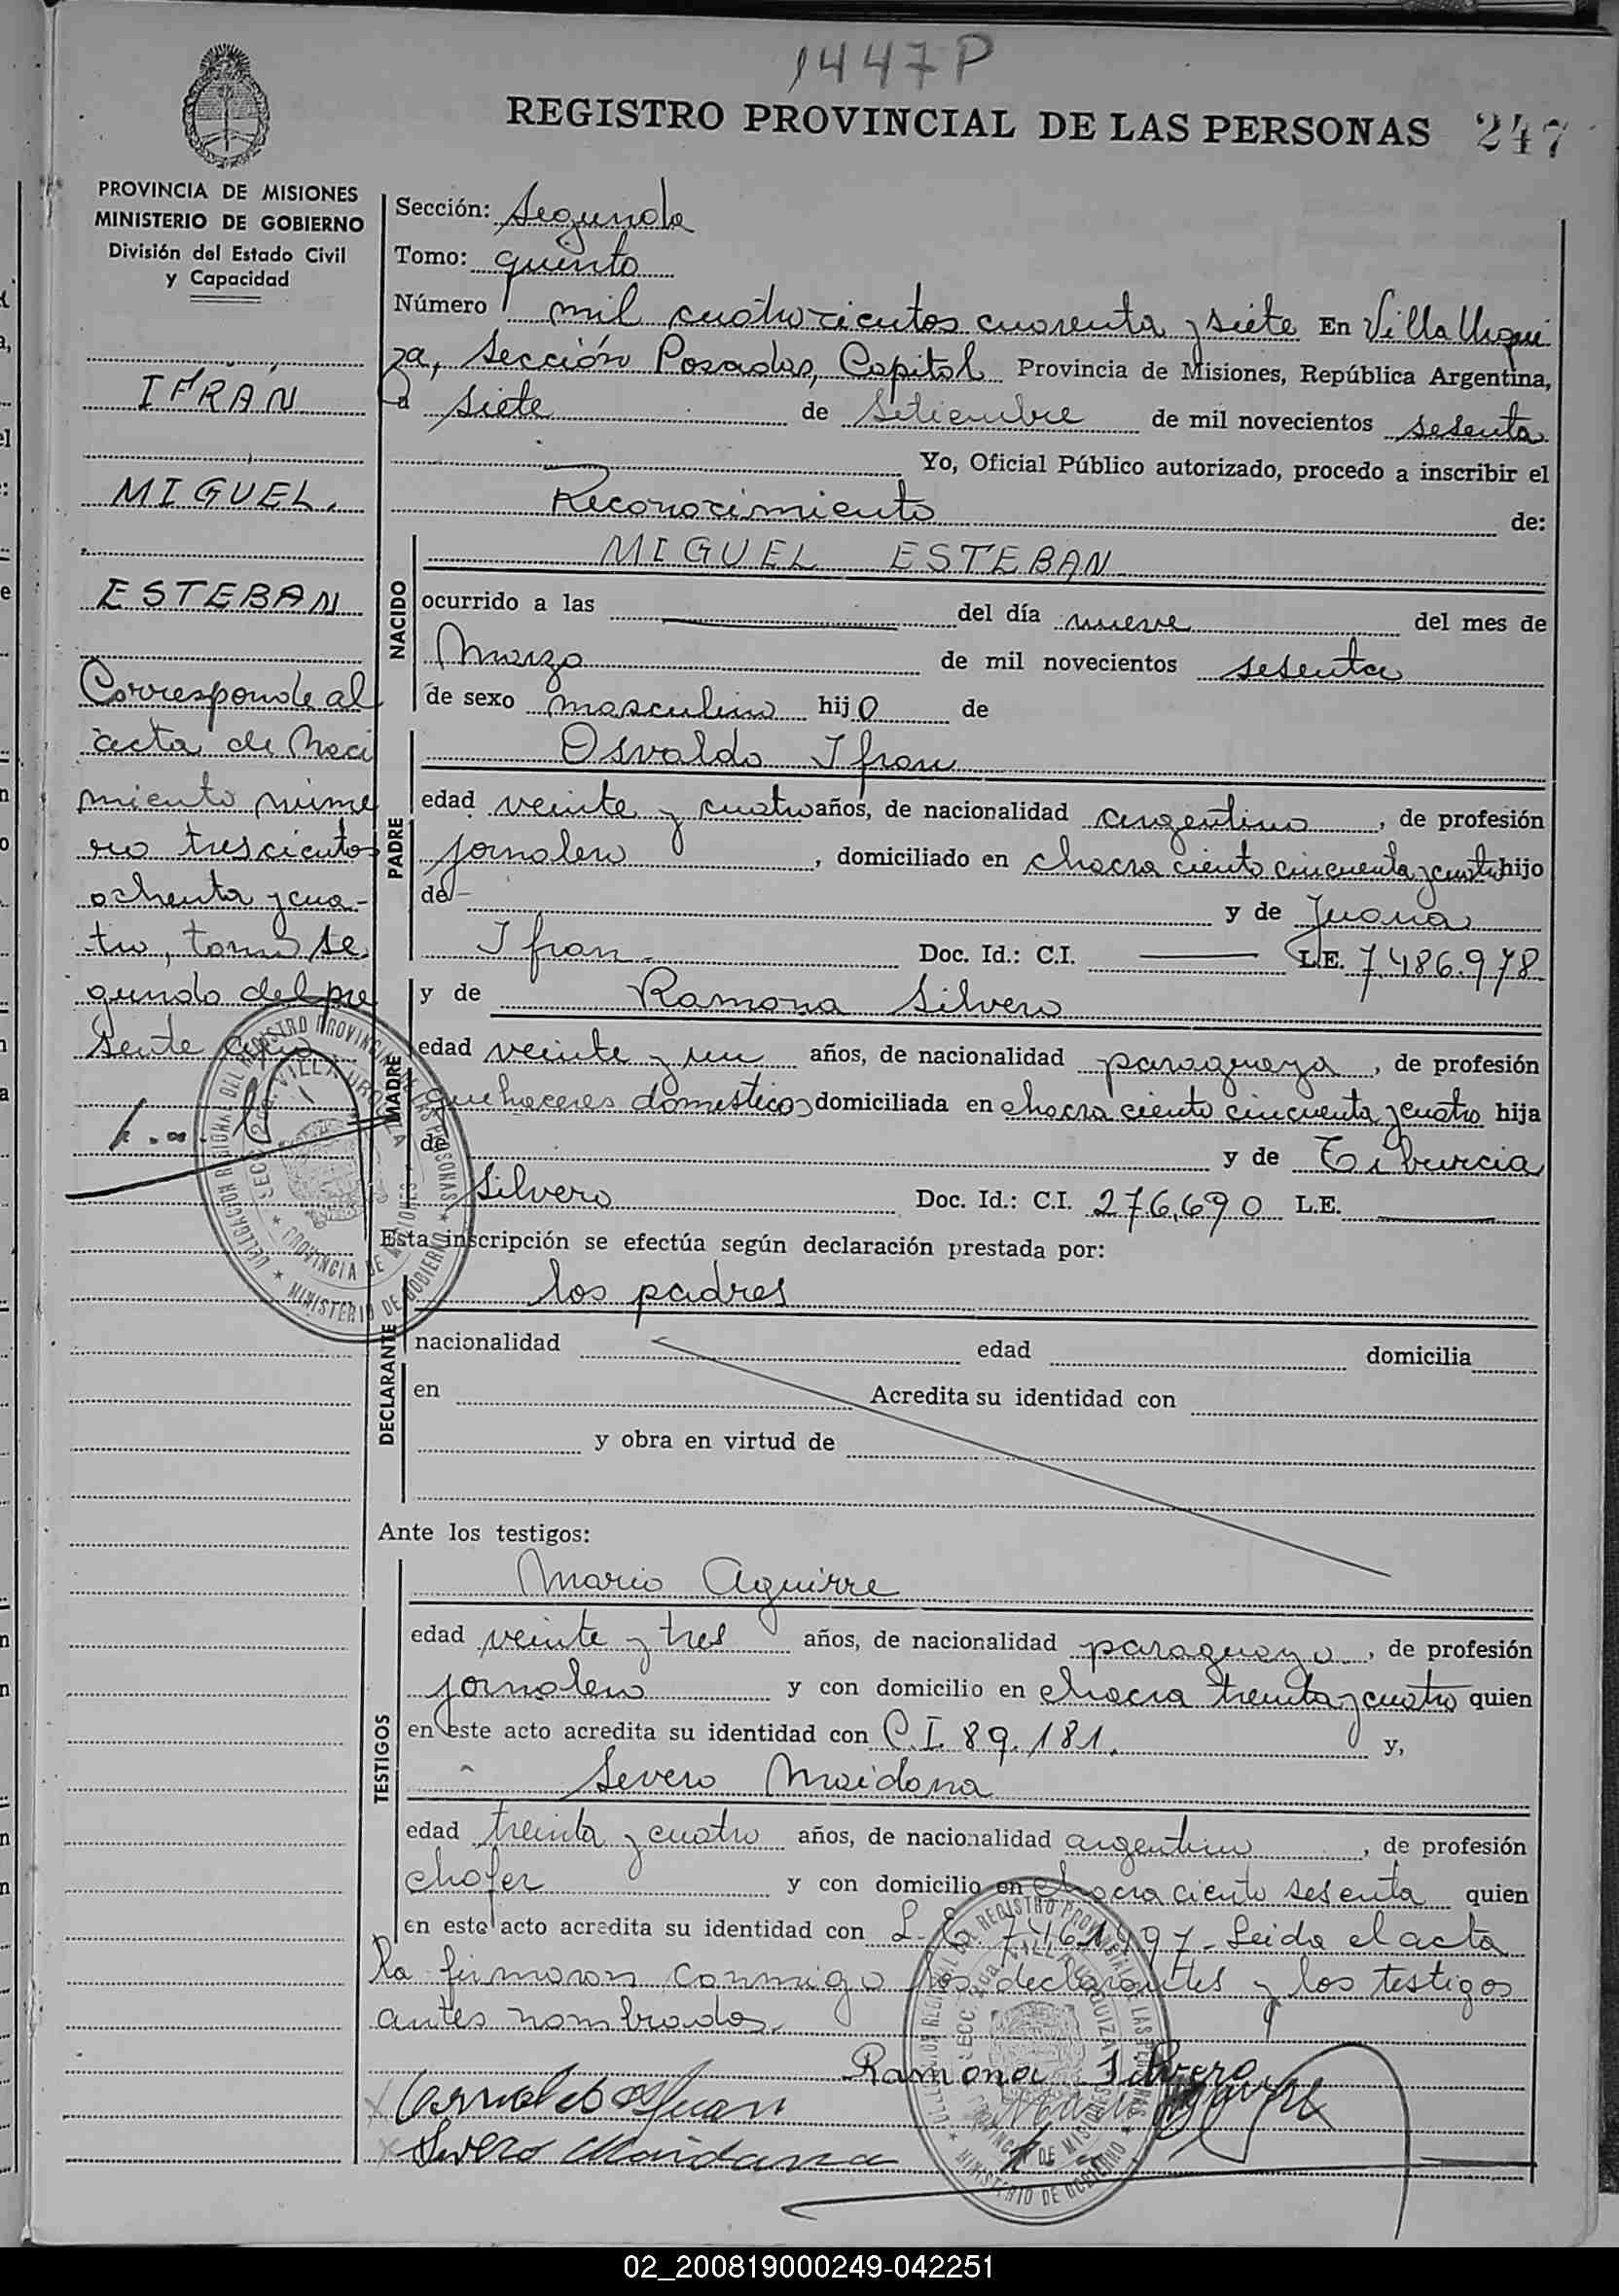 1447P
REGISTRO PROVINCIAL DE LAS PERSONAS 247
PROVINCIA DE MISIONES
MINISTERIO DE GOBIERNO
División del Estado Civil
y Capacidad
IFRAN
MIGUEL
ESTEBAN
Corresponde al
acta de Naci
miento núme
ro trescientos
ochenta y cua-
tro, tomo se
gundo del pre
sente año
Sección: Segunda
Tomo: quinto
Número mil cuatrocientos cuarenta y siete En Villa Urqui
za, Sección Posadas, Capital Provincia de Misiones, República Argentina,
a siete de Setiembre de mil novecientos sesenta
Yo, Oficial Público autorizado, procedo a inscribir el
Reconocimiento de:
NACIDO
MIGUEL ESTEBAN
ocurrido a las del día nueve del mes de
Marzo de mil novecientos sesenta
de sexo masculino hijo de
PADRE
Osvaldo Ifran
edad veinte y cuatro años, de nacionalidad argentino, de profesión
jornalero, domiciliado en chacra ciento cincuenta y cuatro hijo
de y de Juana
Ifran. Doc. Id.: C.I. L.E. 7.486.978
MADRE
y de Ramona Silvero
edad veinte y un años, de nacionalidad paraguaya, de profesión
quehaceres domesticos domiciliada en chacra ciento cincuenta y cuatro hija
de y de Tiburcia
Silvero Doc. Id.: C.I. 276.690 L.E.
Esta inscripción se efectúa según declaración prestada por:
DECLARANTE
los padres
nacionalidad edad domicilia
en Acredita su identidad con
y obra en virtud de
Ante los testigos:
TESTIGOS
Mario Aguirre
edad veinte y tres años, de nacionalidad paraguayo, de profesión
jornalero y con domicilio en chacra treinta y cuatro quien
en este acto acredita su identidad con C.I. 89.181. y,
Severo Maidana
edad treinta y cuatro años, de nacionalidad argentino, de profesión
chofer y con domicilio en chacra ciento sesenta quien
en este acto acredita su identidad con L.E. 7.461.997- Leida el acta
la firmaron conmigo los declarantes y los testigos
antes nombrados.
Ramona Silvero
Severo Maidana
02_200819000249-042251